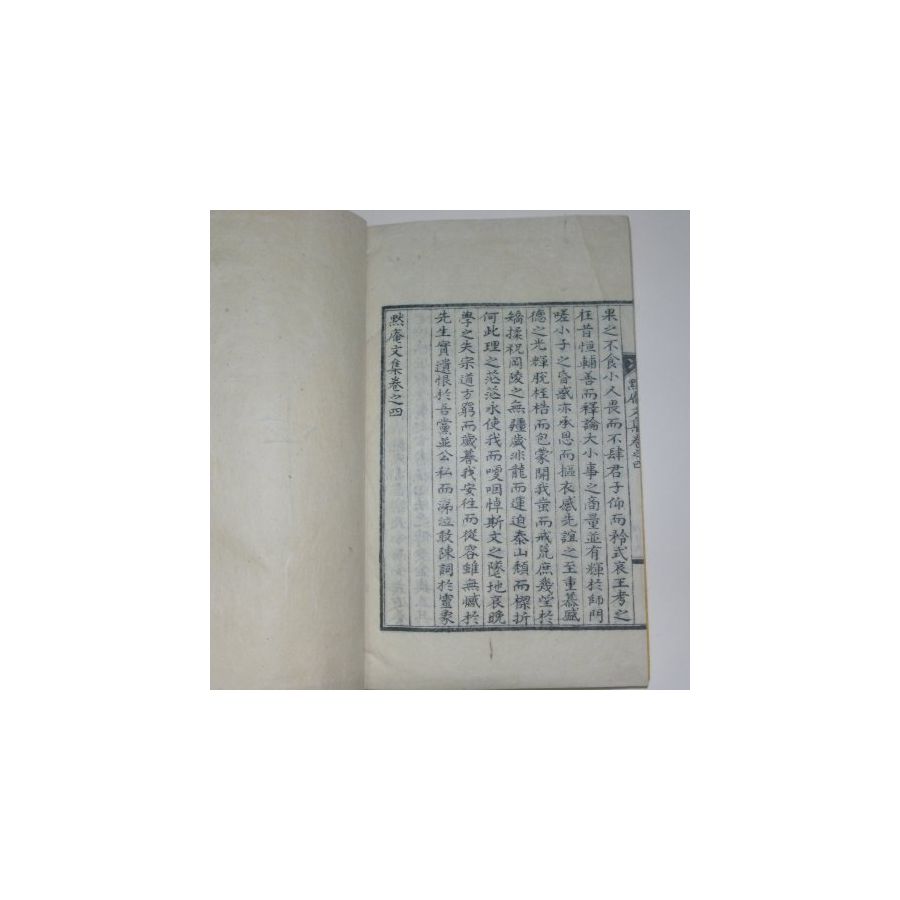 默庵文集卷之四
果之不食小人畏而不肆君子仰而矜式哀王考之
在昔恒輔善而釋論大小事之商量並有輝於師門
嗟小子之昏惑亦承恩而摳衣感先誼之至重慕盛
德之光輝脫枉梏而包蒙開我蚩而戒荒庶幾望於
矯揉祝岡陵之無疆歲非龍而運迫泰山頹而樑折
何此理之茫茫永使我而噯咽悼斯文之墜地哀晚
學之失宗道方窮而歲暮我安往而從容雖無憾於
先生實遺恨於吾黨並公私而涕泣敢陳詞於靈象
默庵文集卷之四